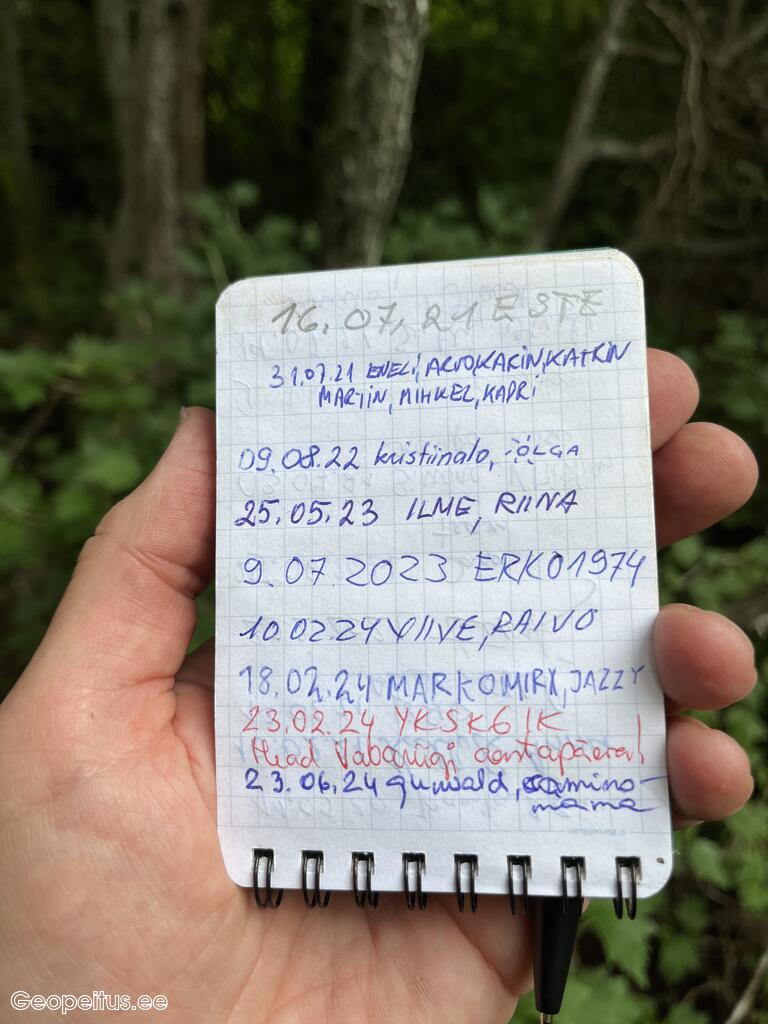 16.07.21 ESTE
31.07.21 ENELI, ARVO, KARIN, KATRIN
MARTIN, MIHKEL, KADRI
09.08.22 kristiinalo, ÖLGA
25.05.23 ILME, RIINA
9.07.2023 ERKO1974
10.02.24 VIIVE, RAIVO
18.02.24 MARKOMIRX, JAZZY
23.02.24 YKSK6IK
Head Vabariigi aastapäeva!
23.06.24 gunvald, camino-
mama
Geopeitus.ee